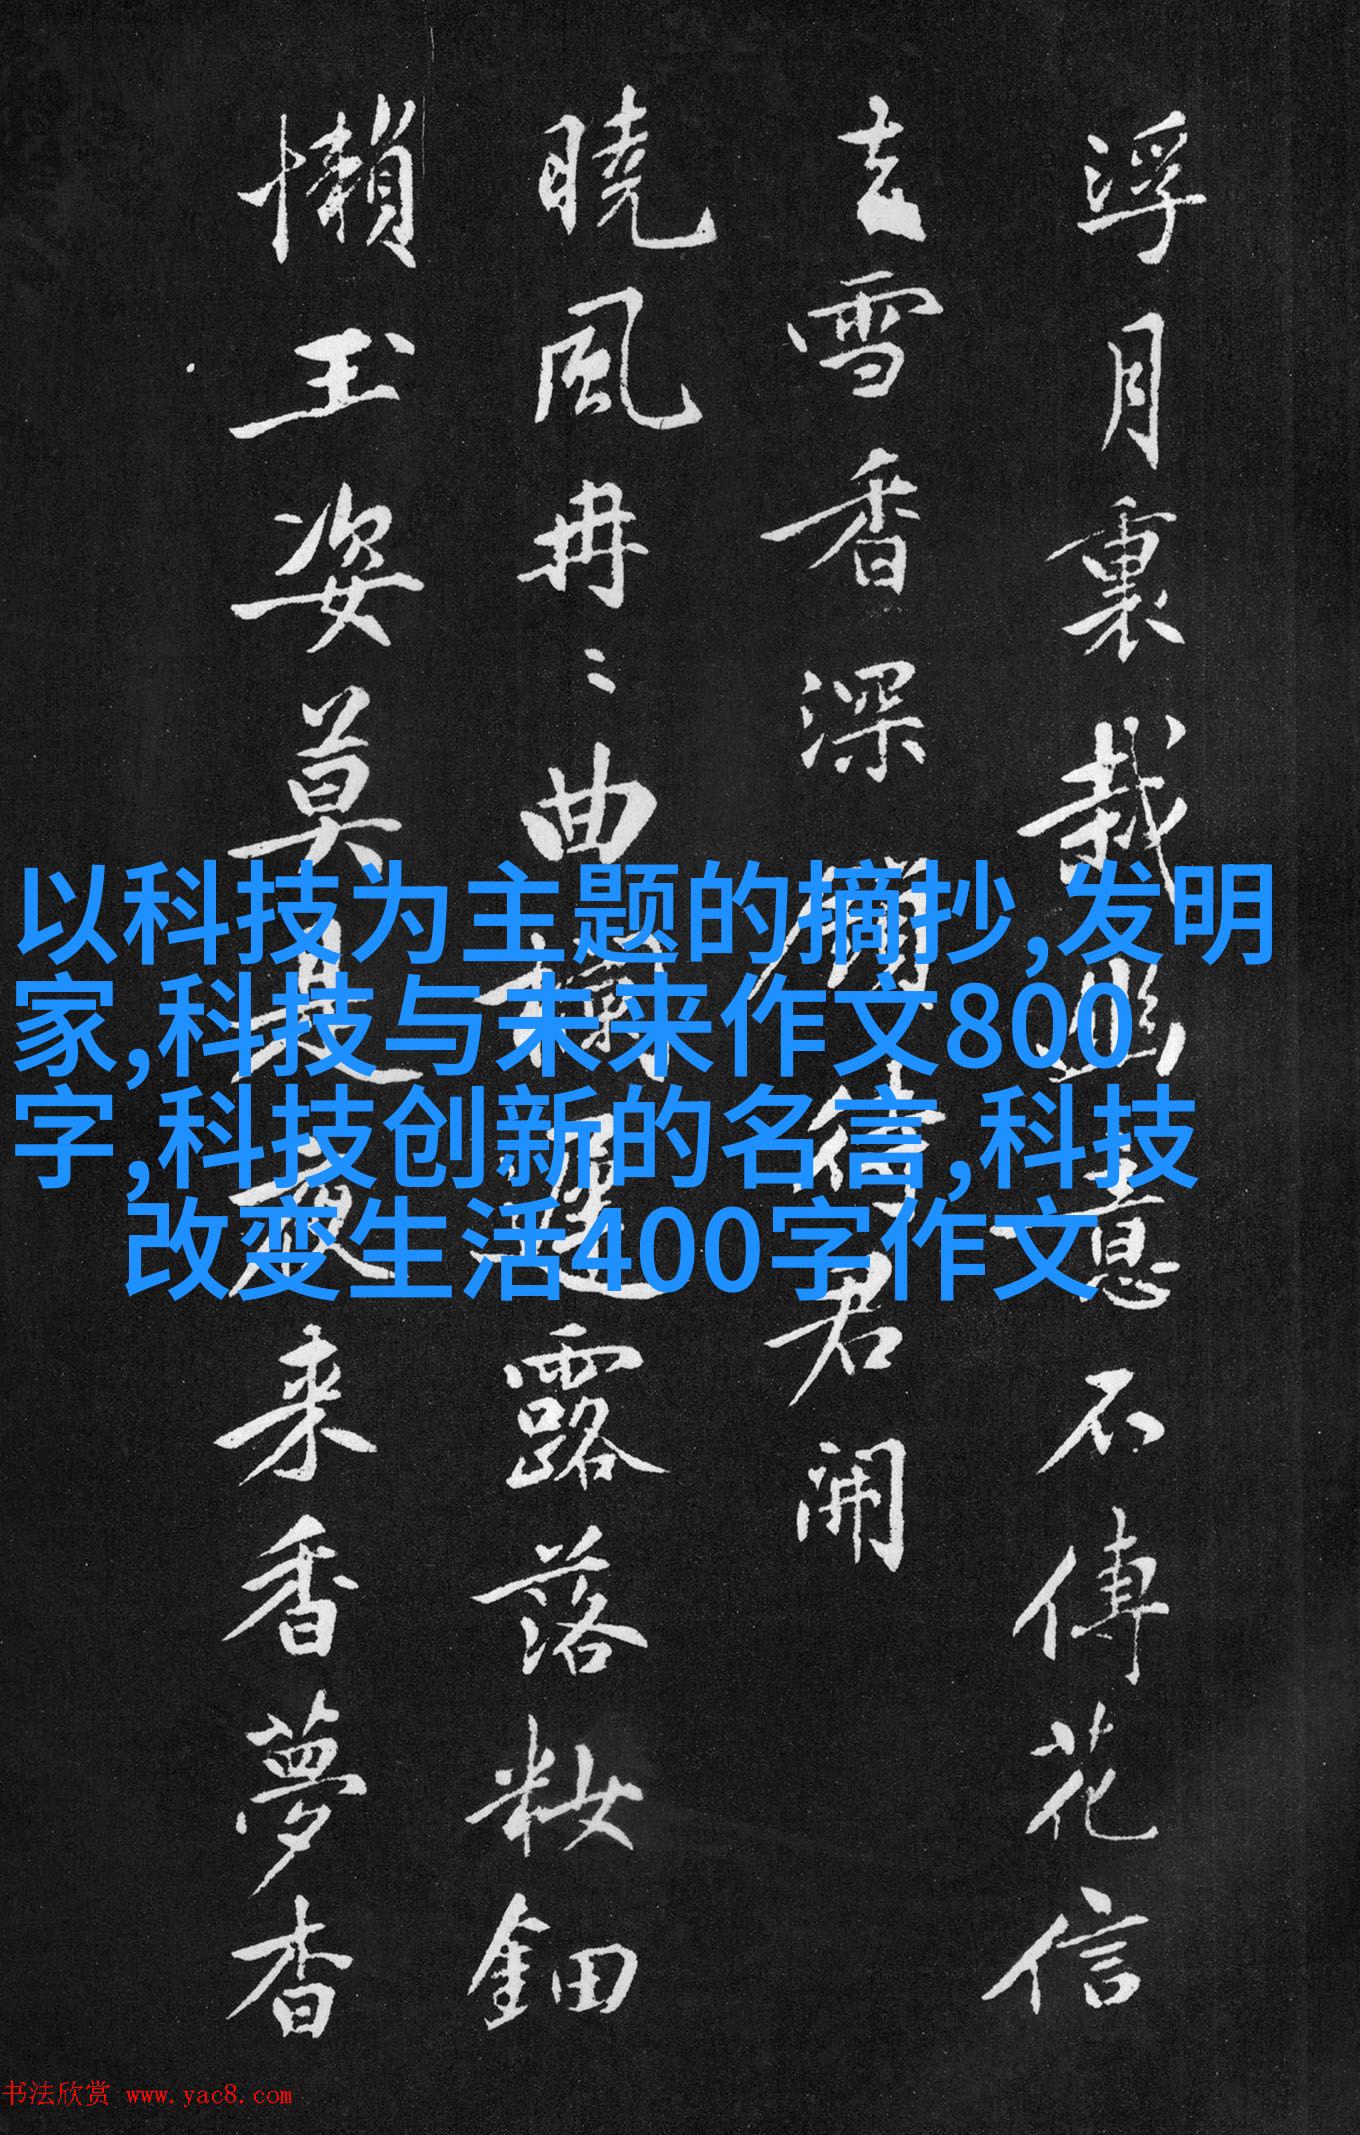 浮月裏栽幽意不傳花信
去雪香深猶待君開
曉風冉〻曲欄遲露落粧鈿
懶玉姿莫是夜来香夢香
以科技为主题的摘抄,发明
家,科技与未来作文800
字,科技创新的名言,科技
改变生活400字作文
书法欣赏 www.yac8.com